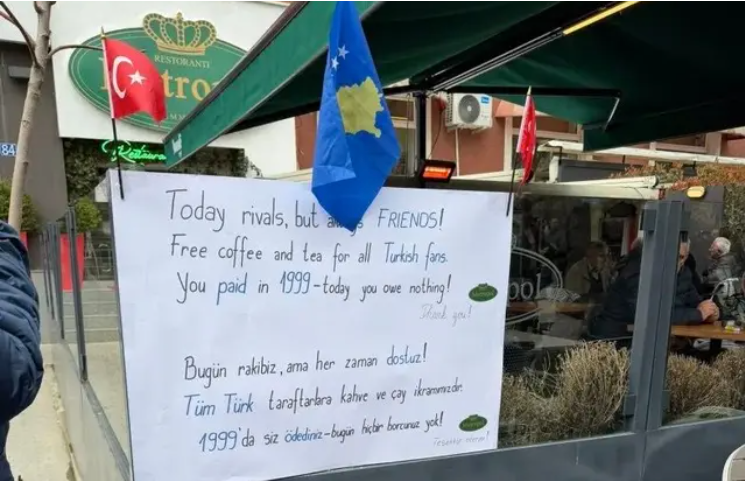 RESTORANTI
Restaurant
84
Today rivals, but always FRIENDS!
Free coffee and tea for all Turkish fans.
You paid in 1999-today you owe nothing!
Thank you!
Bugün rakibiz, ama her zaman dostuz!
Tüm Türk taraftarlara kahve ve çay ikramımızdır.
1999'da siz ödediniz-bugün hiçbir borcunuz yok!
Teşekkür ederim!